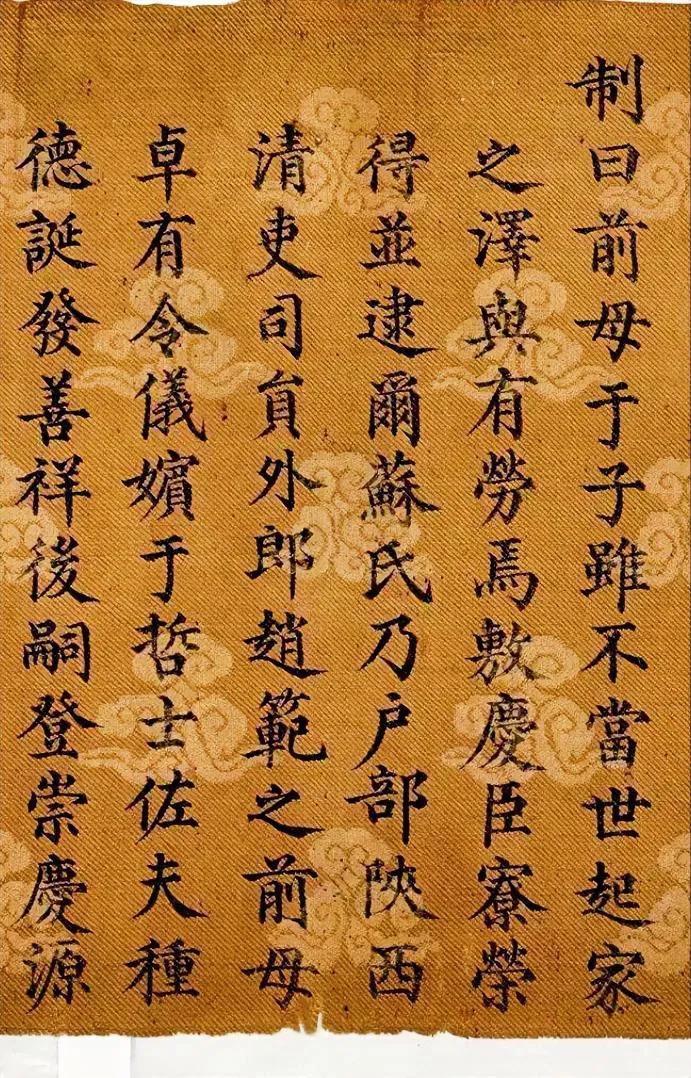 制曰前母于子雖不當世起家
之澤與有勞焉敷慶臣寮榮
得並逮爾蘇氏乃戶部陝西
清吏司貟外郎趙範之前母
卓有令儀嬪于哲士佐夫種
德誕發善祥後嗣登崇慶源